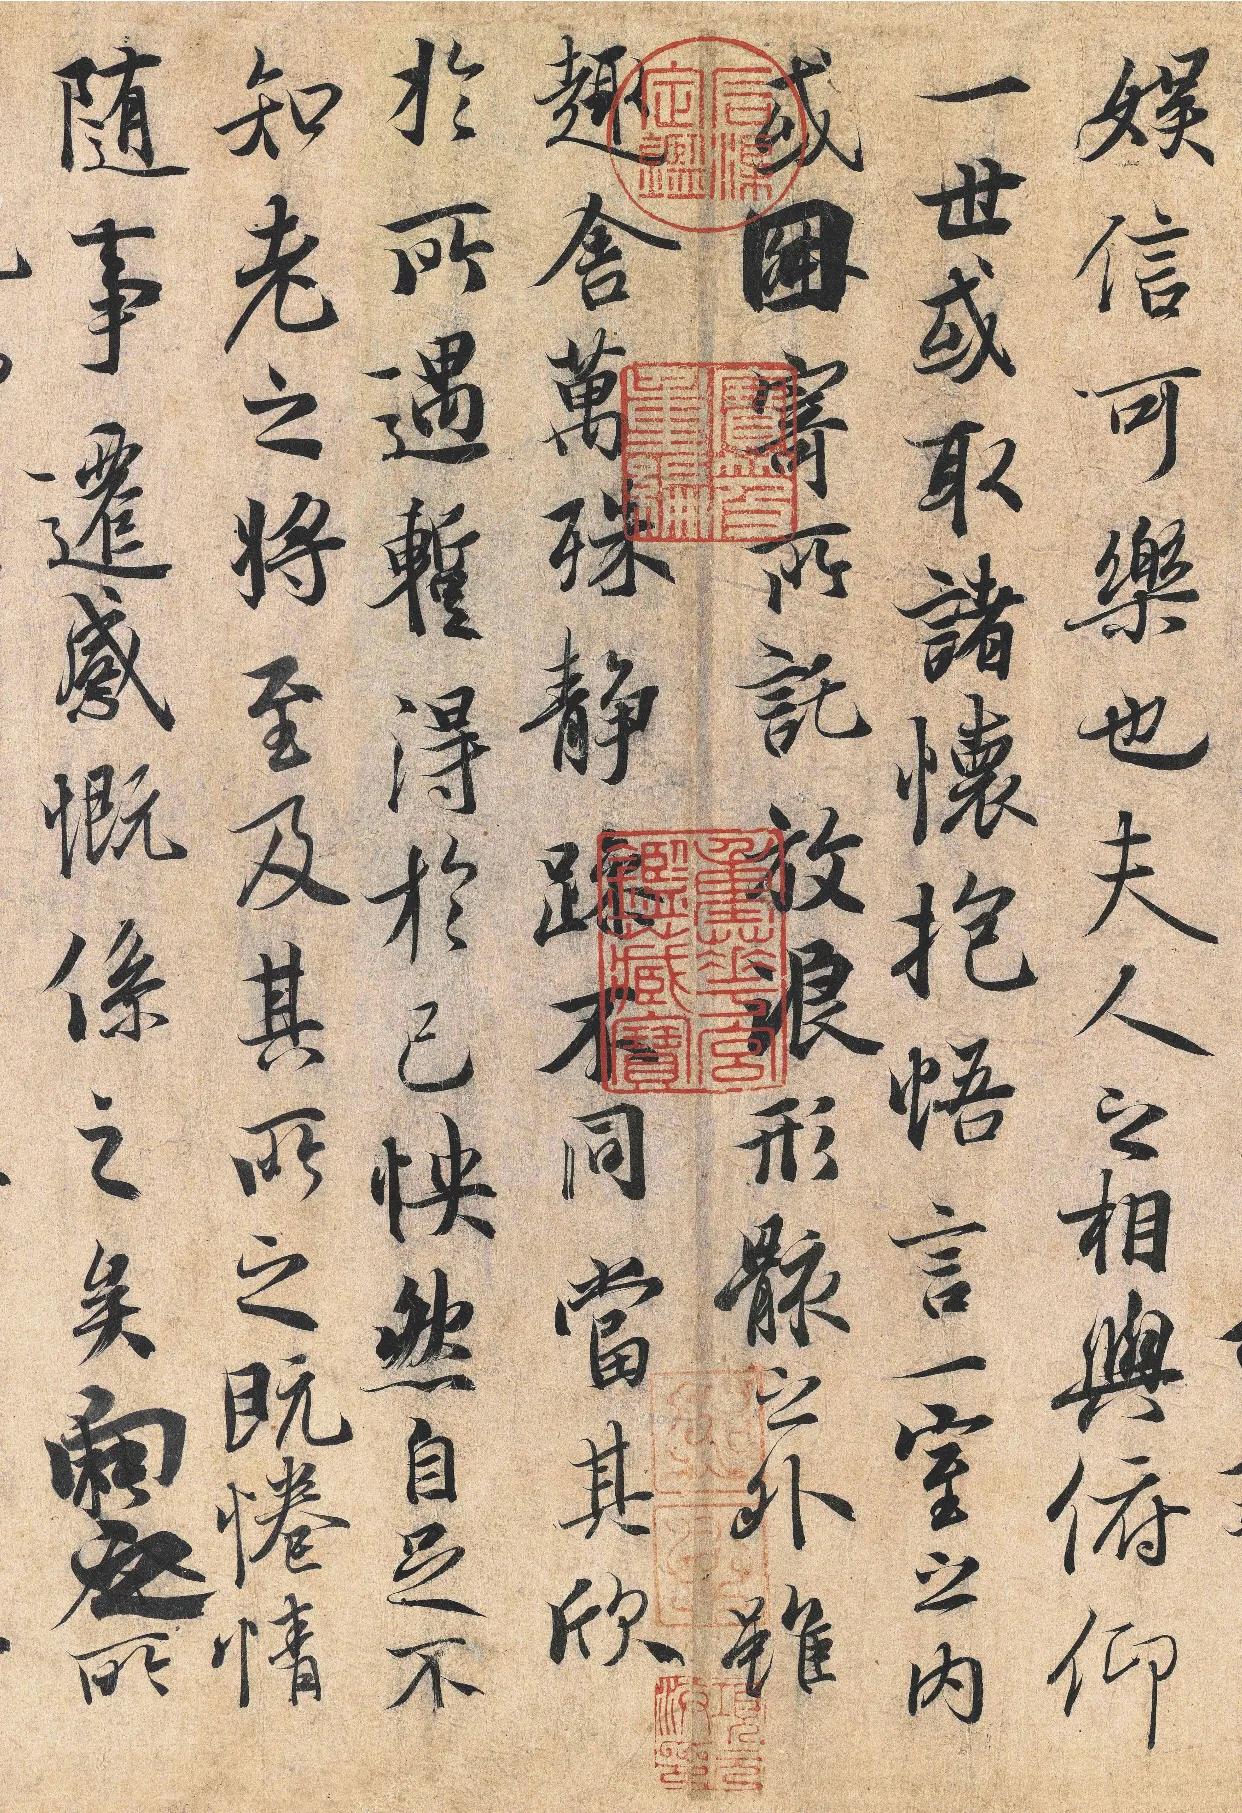 娛信可樂也夫人之相與俯仰
一世或取諸懷抱悟言一室之內
或因寄所託放浪形骸之外雖
趣舍萬殊静躁不同當其欣
於所遇暫得於己怏然自足不
知老之將至及其所之既惓情
随事遷感慨係之矣向之所
石渠定鑑
寶笈重編
重華宮鑑藏寶